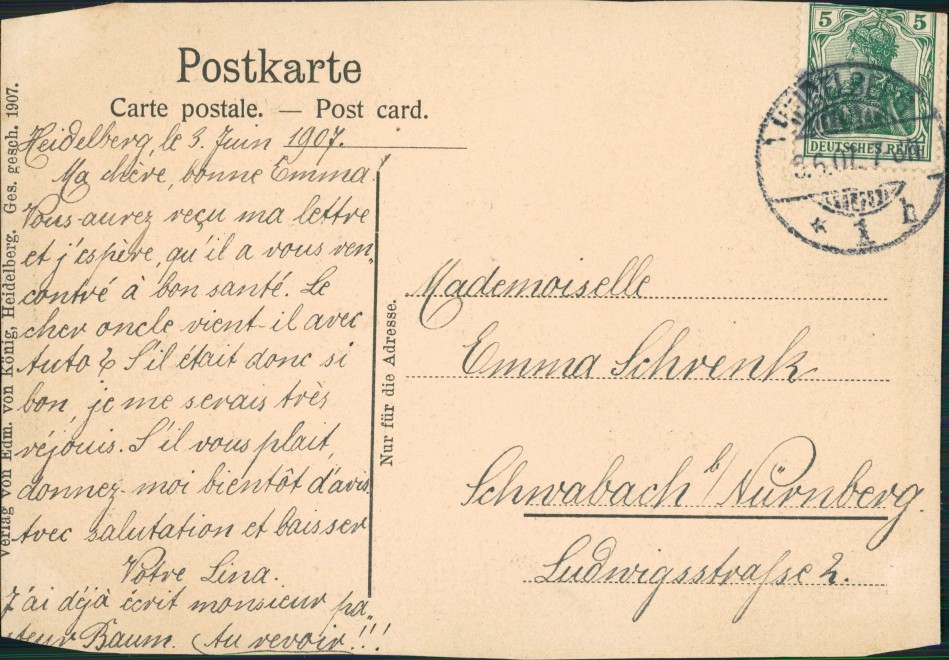 Postkarte
Carte postale. — Post card.
Heidelberg, le 3. Juin 1907.
Ma chère, bonne Emma!
Vous aurez reçu ma lettre
et j'espère, qu'il a vous ren„
contré à bon santé. Le
cher oncle vient-il avec
Auto? S'il était donc si
bon, je me serais très
réjouis. S'il vous plait,
donnez-moi bientôt d'avis.
Avec salutation et baisser
Votre Lina.
J'ai déjà écrit monsieur pa„
steur Baum. Au revoir!!!
Verlag von Edm. von König, Heidelberg. Ges. gesch. 1907.
Nur für die Adresse.
Mademoiselle
Emma Schrenk
Schwabach b/Nürnberg.
Ludwigsstraße 2.
5 5
DEUTSCHES REICH
HEIDELBERG
* 1 h